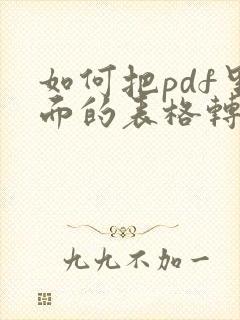 如何把pdf里
而的表格轉
九九不加一